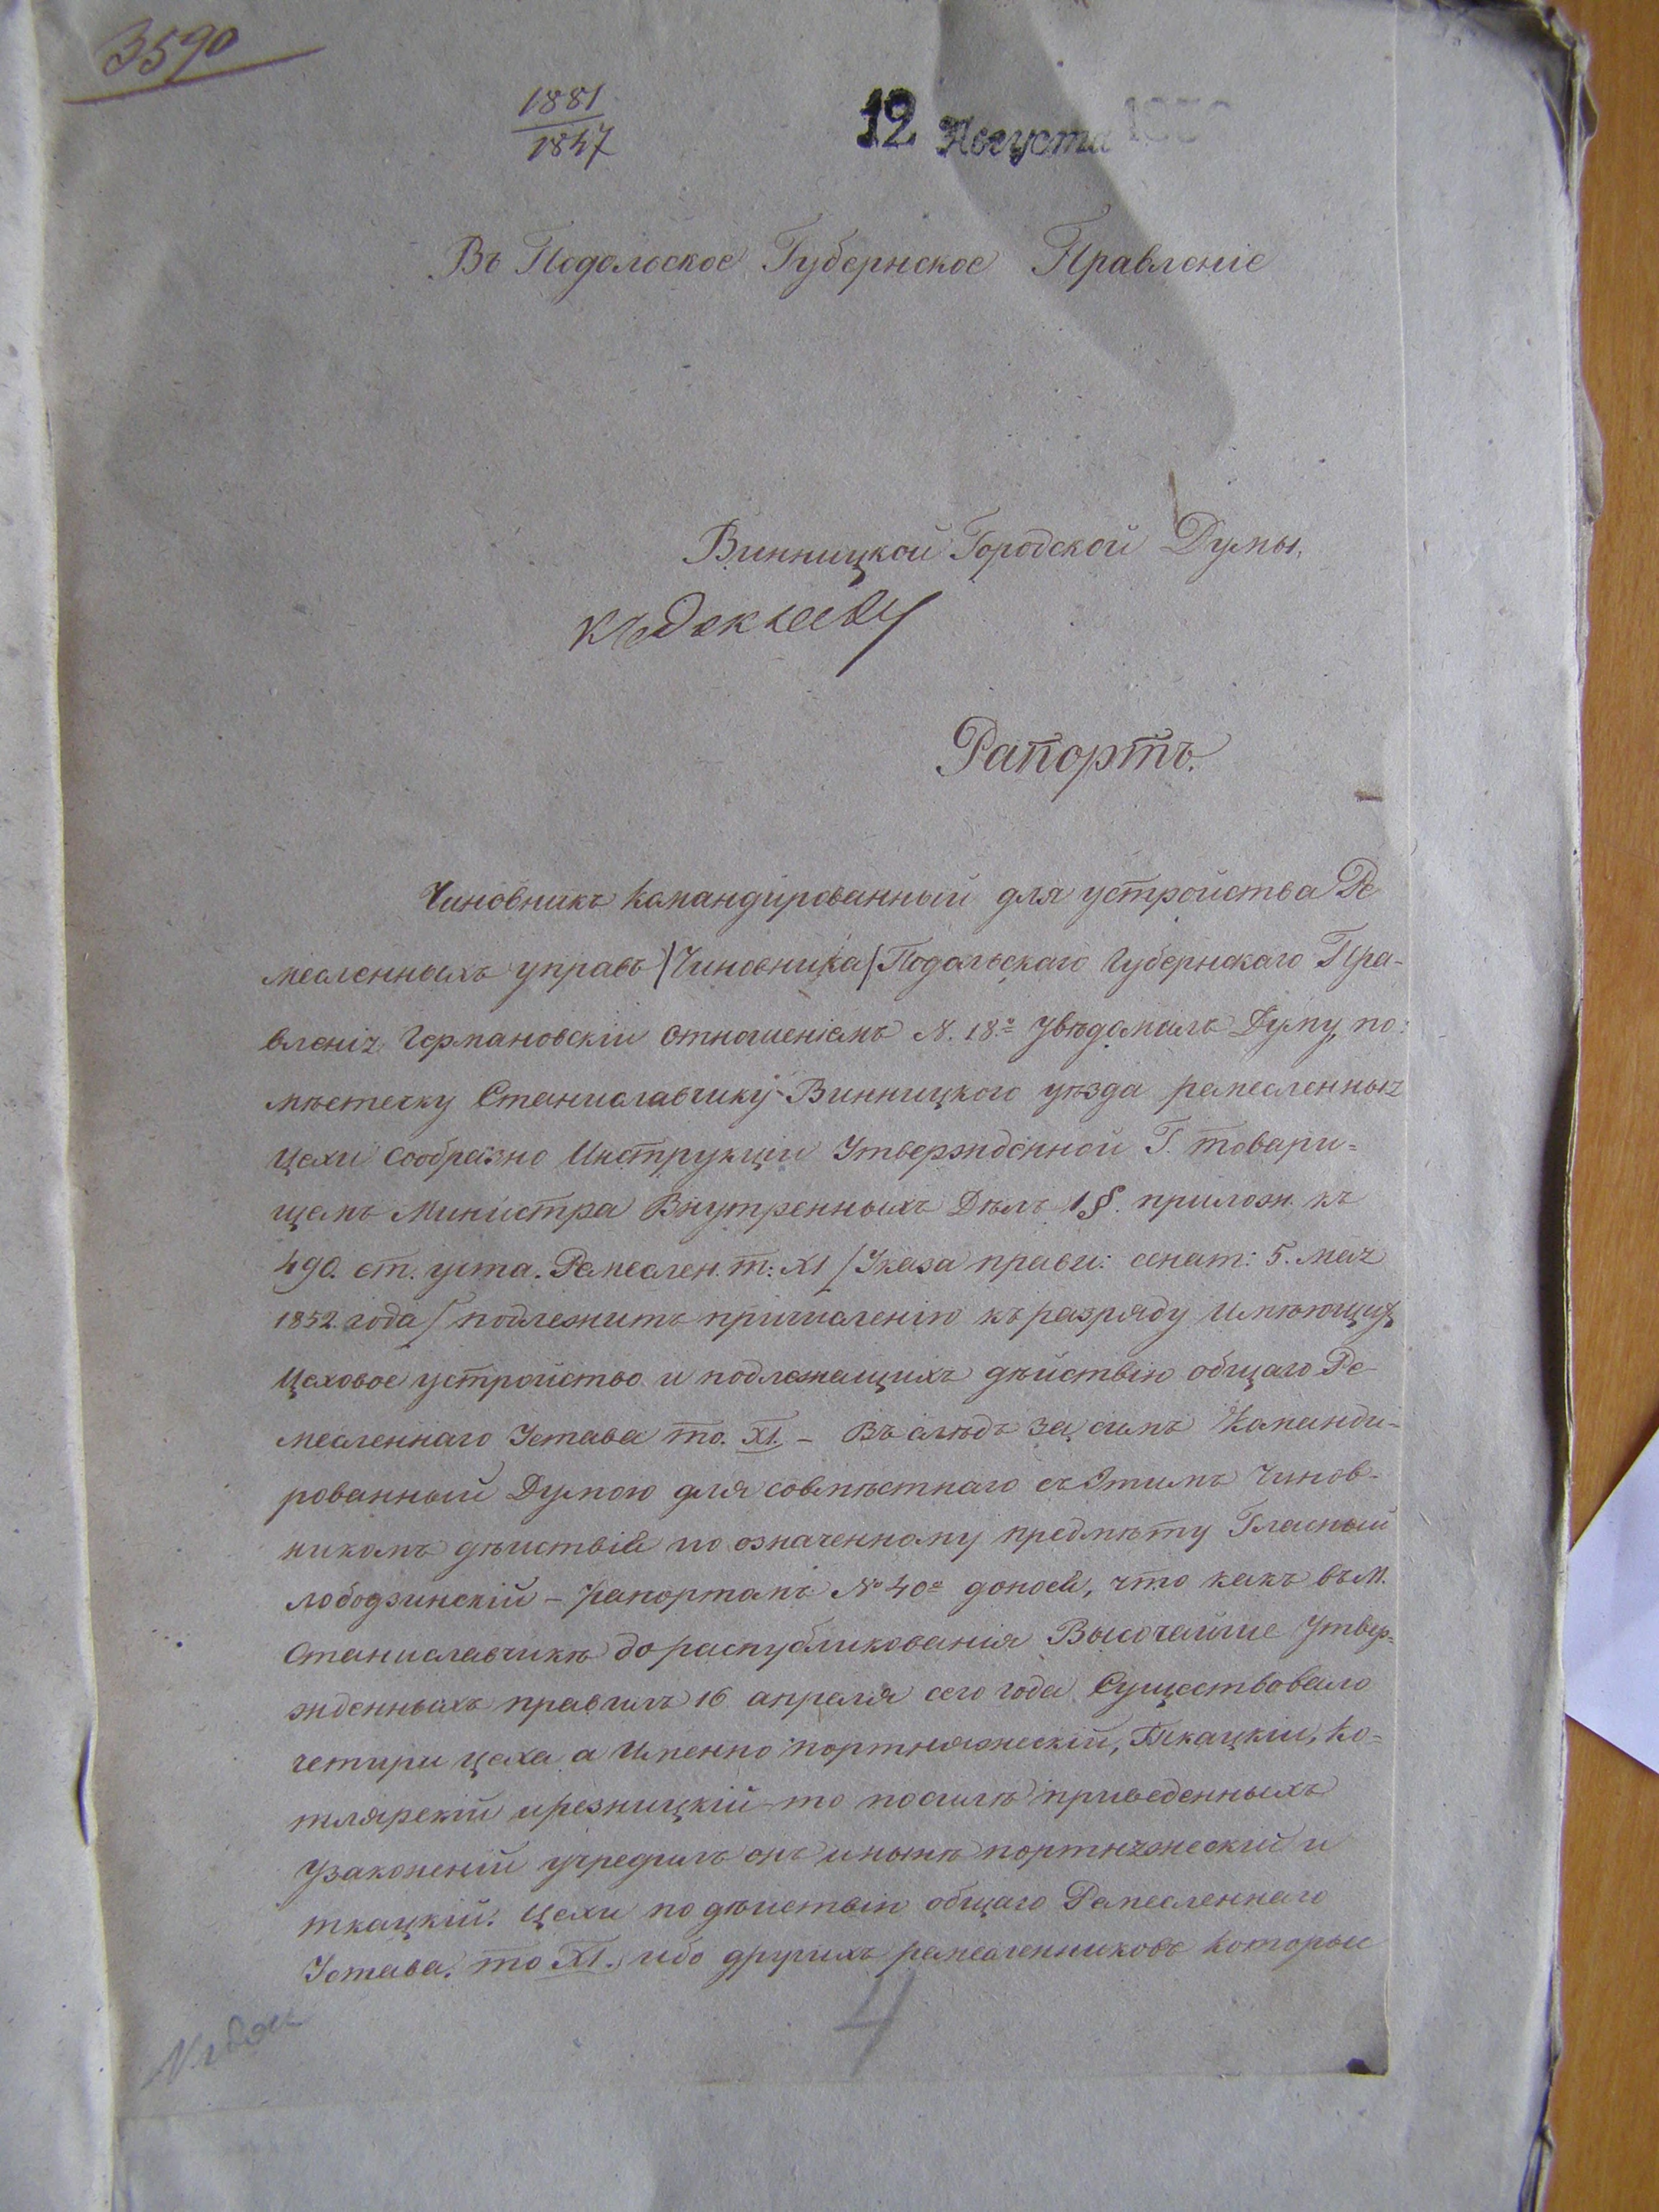 3590
1881
1847
12 Августа
Въ Подольское Губернское Правленіе
Винницкой Городской Думы,
къ
Рапортъ.
Чиновникъ командированный для устройства Ре
месленныхъ управъ /Чиновника/ Подольскаго Губернскаго Пра-
вленія Германовскій отношеніемъ N. 18.º увѣдомилъ Думу, по:
мѣстечку Станиславчику Винницкого уѣзда ремесленныя
цехи сообразно Инструкціи Утвержденной Г. товари=
щемъ Министра Внутренныхъ Дѣлъ 1§. прилож. къ
490. ст. уста. Ремеслен. т: XI /Указа прави: сенат: 5. мая
1852 года/ подлежитъ причисленію къ разряду имѣющихъ
Цеховое устройство и подлежащихъ дѣйствію общаго Ре-
месленнаго Устава то. XI. – Въ слѣдъ за симъ Команди-
рованный Думою для совмѣстнаго съ Этимъ Чинов-
никомъ дѣиствія по означенному предмѣту Гласный
Лободзинскій – рапортамъ № 40º доносъ, что какъ въ М.
Станиславчикѣ до распубликованія Высочайше Утвер=
жденныхъ правилъ 16 апреля сего года Существовало
четыри цеха а Именно портняжескій, Ткацкіи, Ко=
тлярскій и резницкій то посилѣ приведенныхъ
Узаконеній учредилъ онъ и нынѣ портняжескій и
ткацкій. Цехи по дѣиствію общаго Ремесленнаго
Устава. то XI., ибо другихъ ремесленниковъ Которые
4